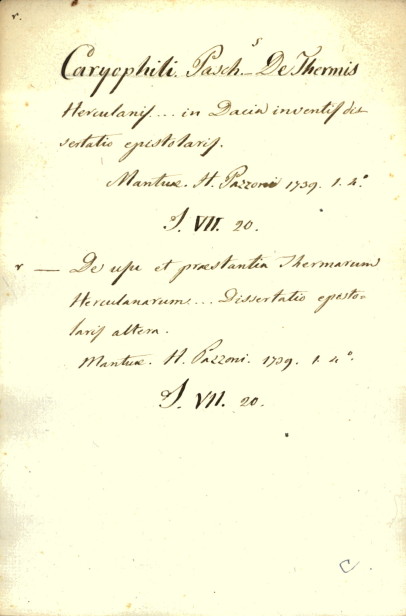 r.
Caryophili. Pasch.s – De Thermis
Herculanis... in Dacia inventis dis
sertatio epistolaris.
Mantuæ. H. Pazzoni 1739. 1. 4.°
S. VII. 20.
r — De usu et præstantia Thermarum
Herculanarum... Dissertatio episto-
laris altera.
Mantuæ. H. Pazzoni. 1739. 1. 4°.
S. VII. 20.
C